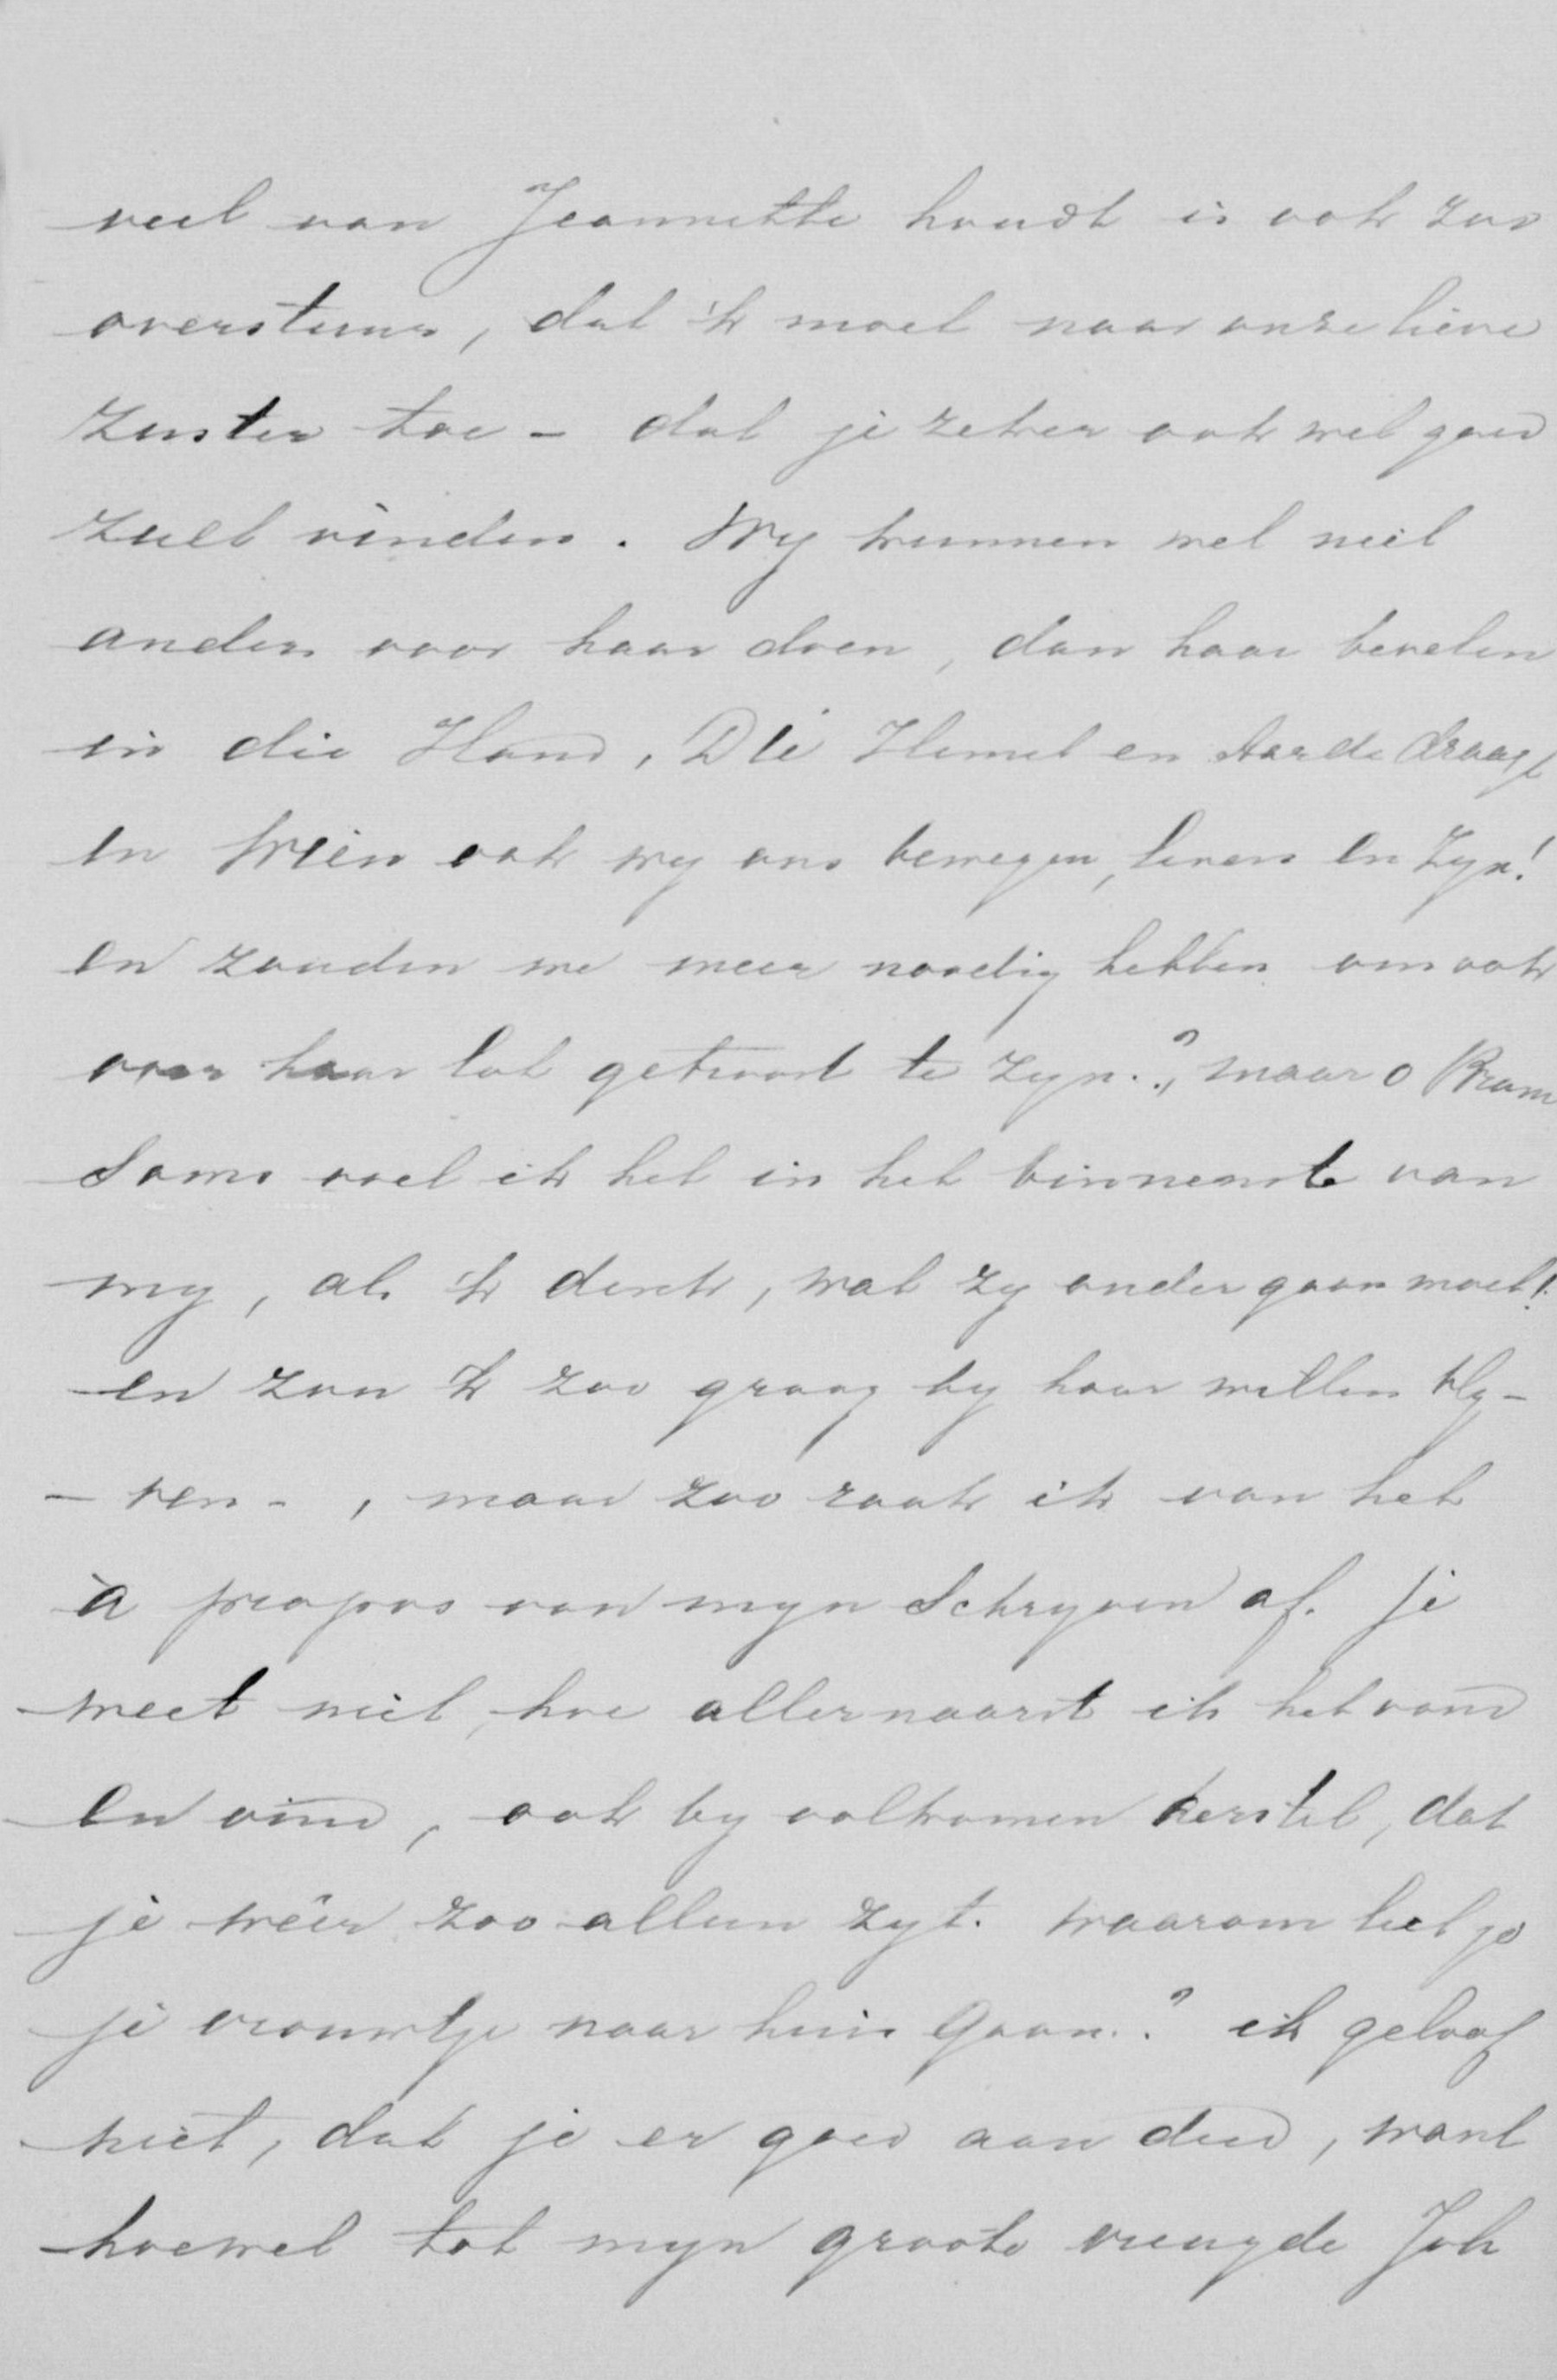 veel van Jeannette houdt is ook zoo
overstuur, dat 'k moet naar onze lieve
Zuster toe - dat je zeker ook wel goed
zult vinden. Wy kunnen wel niet
anders voor haar doen, dan haar bevelen
in die Hand, Die Hemel en Aarde draagt
en Wien ook wy ons bewegen, leven en zyn!
en zouden we meer noodig hebben om ook
over haar lot getroost te zyn.?, maar o Bram
Soms voel ik het in het binnenste van
my, als 'k denk, wat zy ondergaan moet!
en zou 'k zoo graag by haar willen bly-
- ven - , maar zoo raak ik van het
à propos van myn Schryven af. Je
weet niet, hoe allernaarst ik het vond
en vind, ook by volkomen herstel, dat
je wêer zoo alleen zyt. Waarom liet je
je vrouwtje naar huis gaan.? ik geloof
niet, dat je er goed aan deed, want
hoewel tot myn groote vreugde Joh